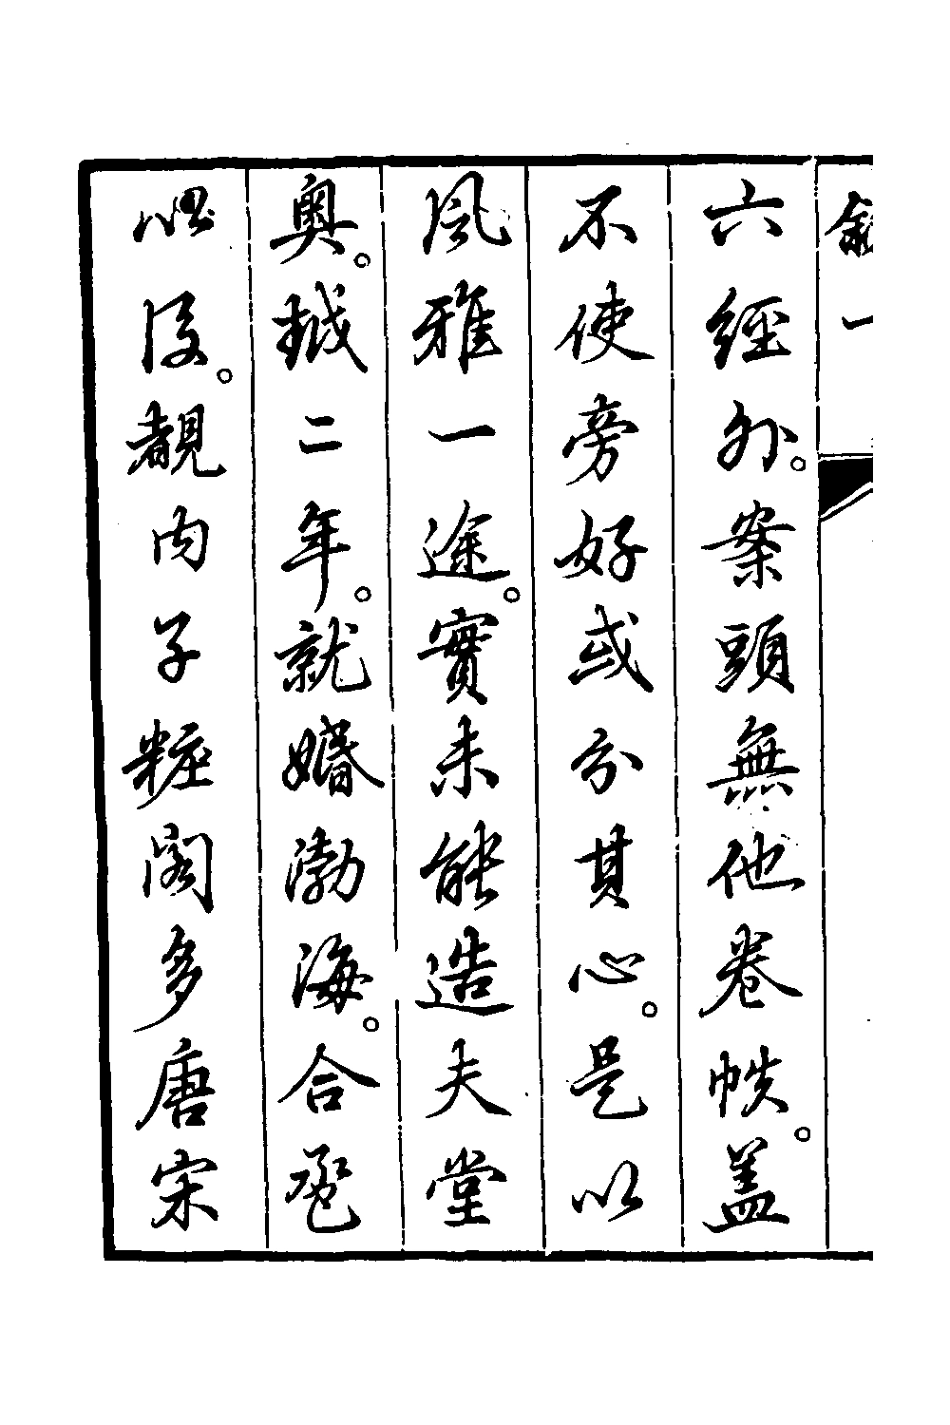 敘一
六經外。案頭無他卷帙。盖
不使旁好或分其心。是以
風雅一途。實未能造夫堂
奧。越二年。就婚渤海。合巹
後。覩内子粧閣多唐宋